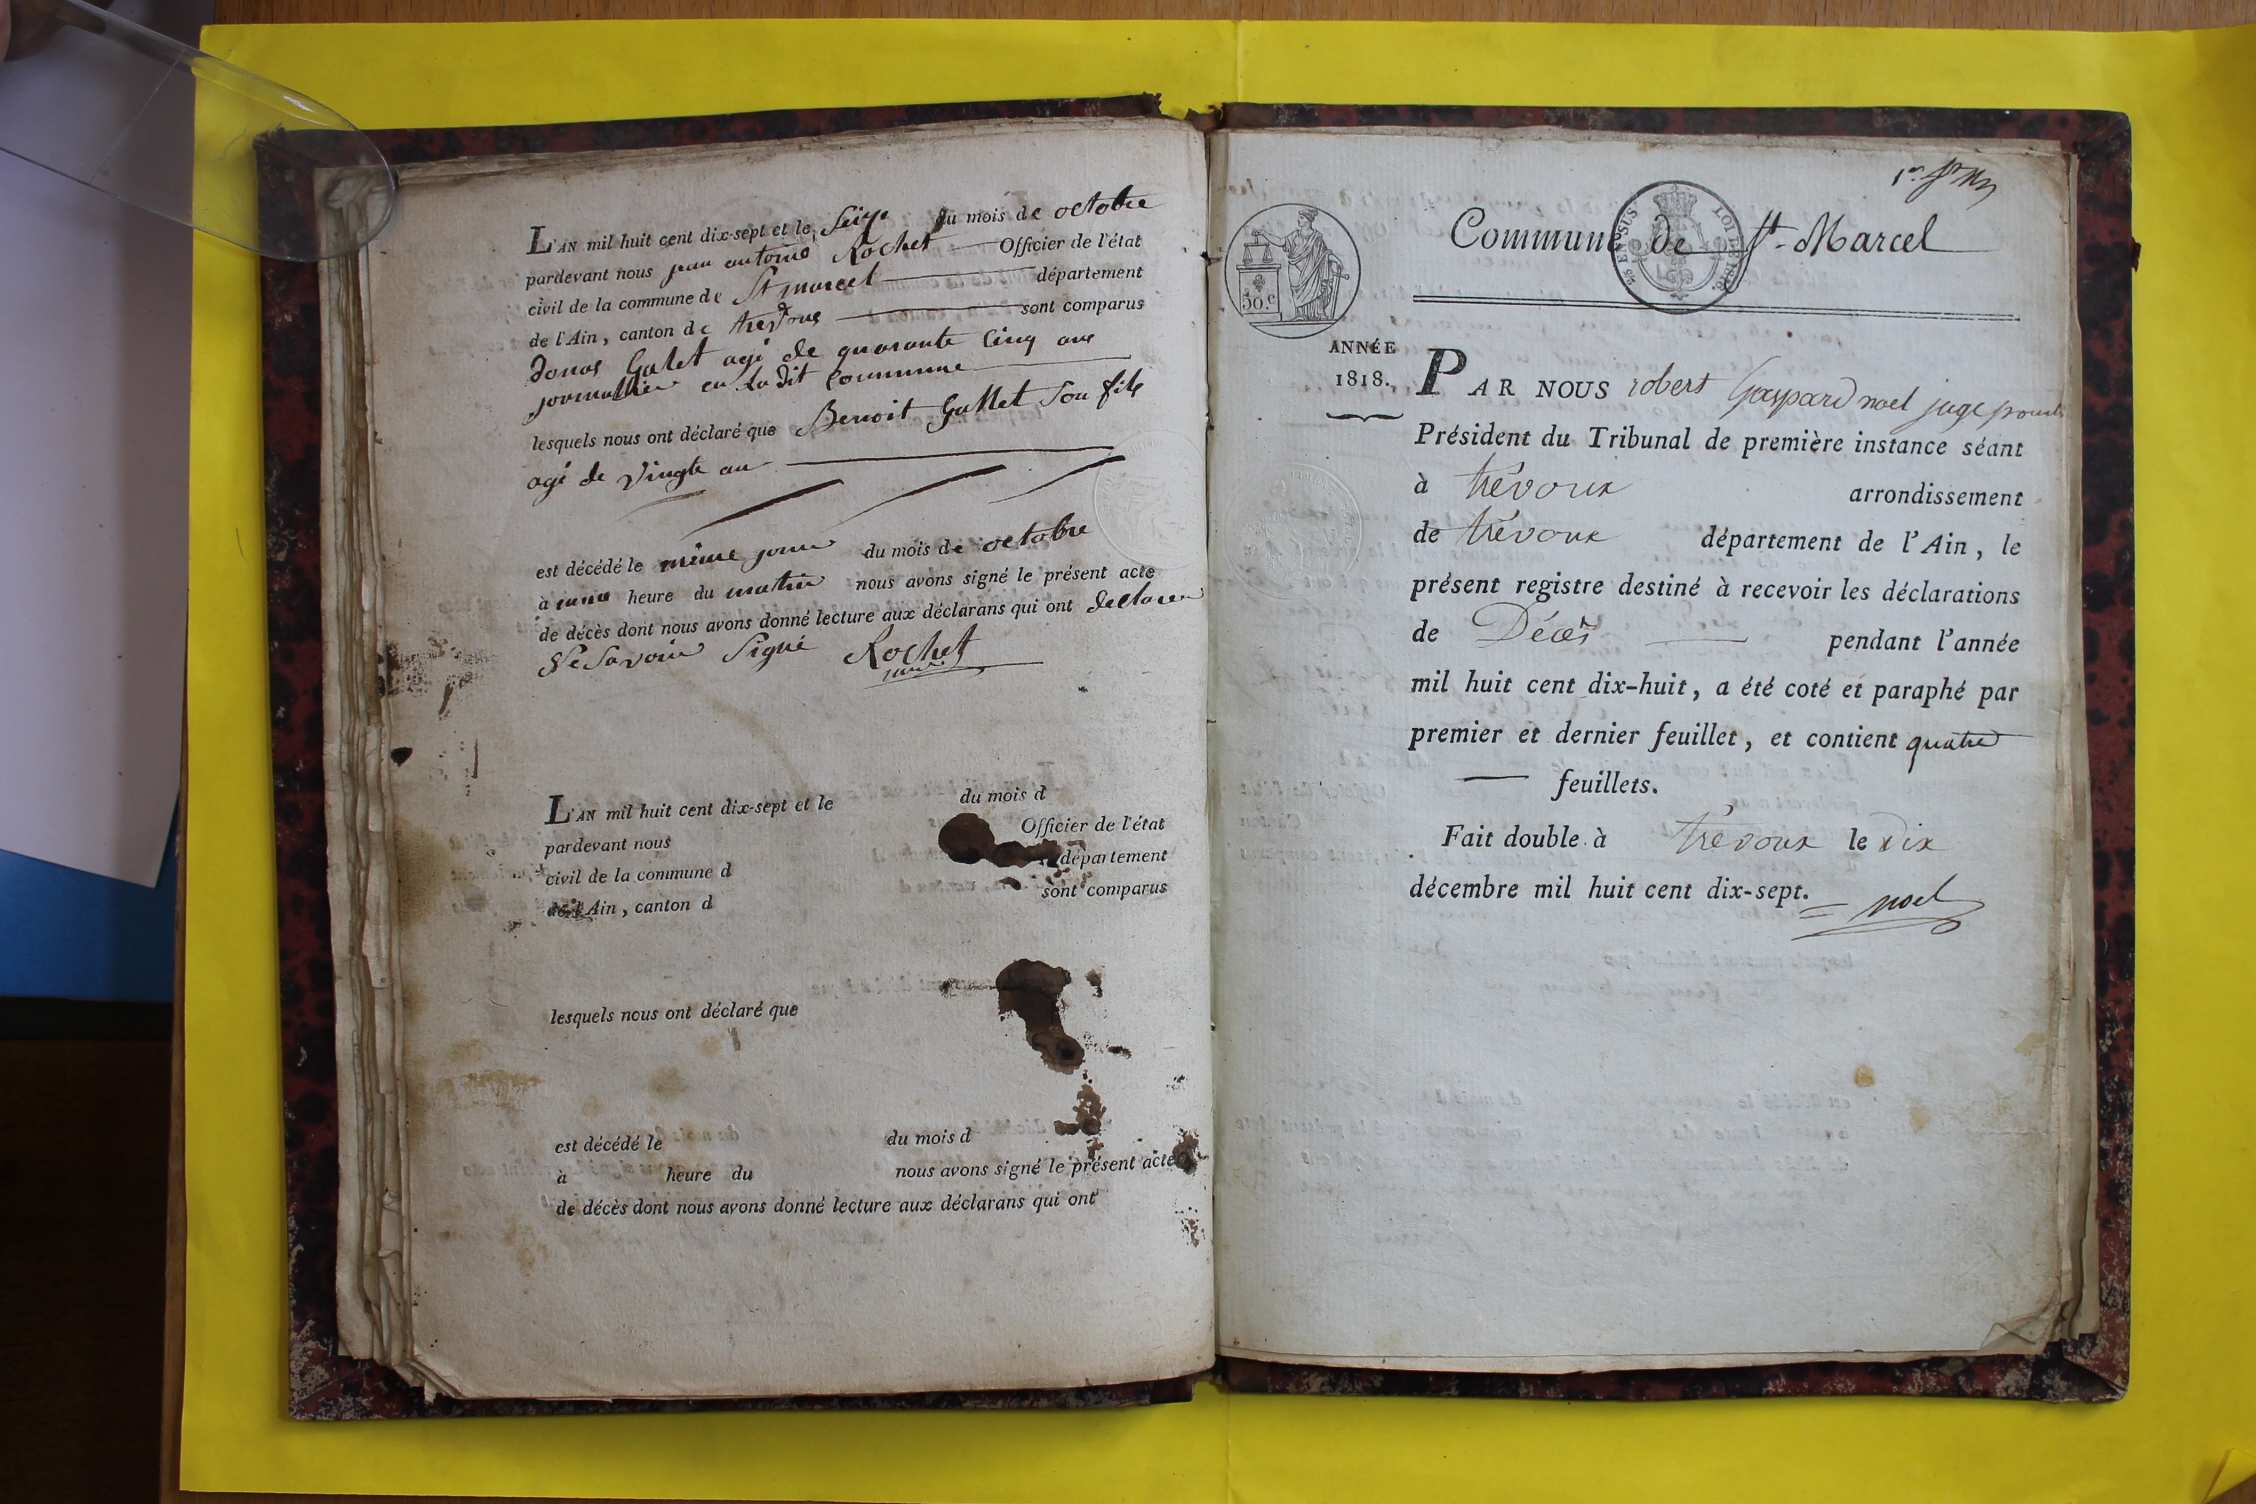 L'AN mil huit cent dix-sept et le Seize du mois de octobre
pardevant nous jean antoine Rochet Officier de l'état
civil de la commune de St marcel département
de l'Ain, canton de trevoux sont comparus
Galet agé de quarante Cinq ans
journallier en Ladit Commune
lesquels nous ont déclaré que Benoit Gallet Son fils
agé de vingts an
est décédé le même jour du mois de octobre
à une heure du matin nous avons signé le présent acte
de décès dont nous avons donné lecture aux déclarans qui ont
Savoir Signé Rochet
L'AN mil huit cent dix-sept et le du mois d
pardevant nous Officier de l'état
civil de la commune d département
de l'Ain, canton d sont comparus
lesquels nous ont déclaré que
est décédé le du mois d
à heure du nous avons signé le présent acte
de décès dont nous avons donné lecture aux déclarans qui ont
Commune de St-Marcel
25 EN SUS LOI DE 1816.
50.c
ANNÉE
1818.
PAR NOUS robert Gaspard noel juge pour le
Président du Tribunal de première instance séant
à trévoux arrondissement
de trévoux département de l'Ain, le
présent registre destiné à recevoir les déclarations
de Décès pendant l'année
mil huit cent dix-huit, a été coté et paraphé par
premier et dernier feuillet, et contient quatre
feuillets.
Fait double à trévoux le dix
décembre mil huit cent dix-sept.
noel